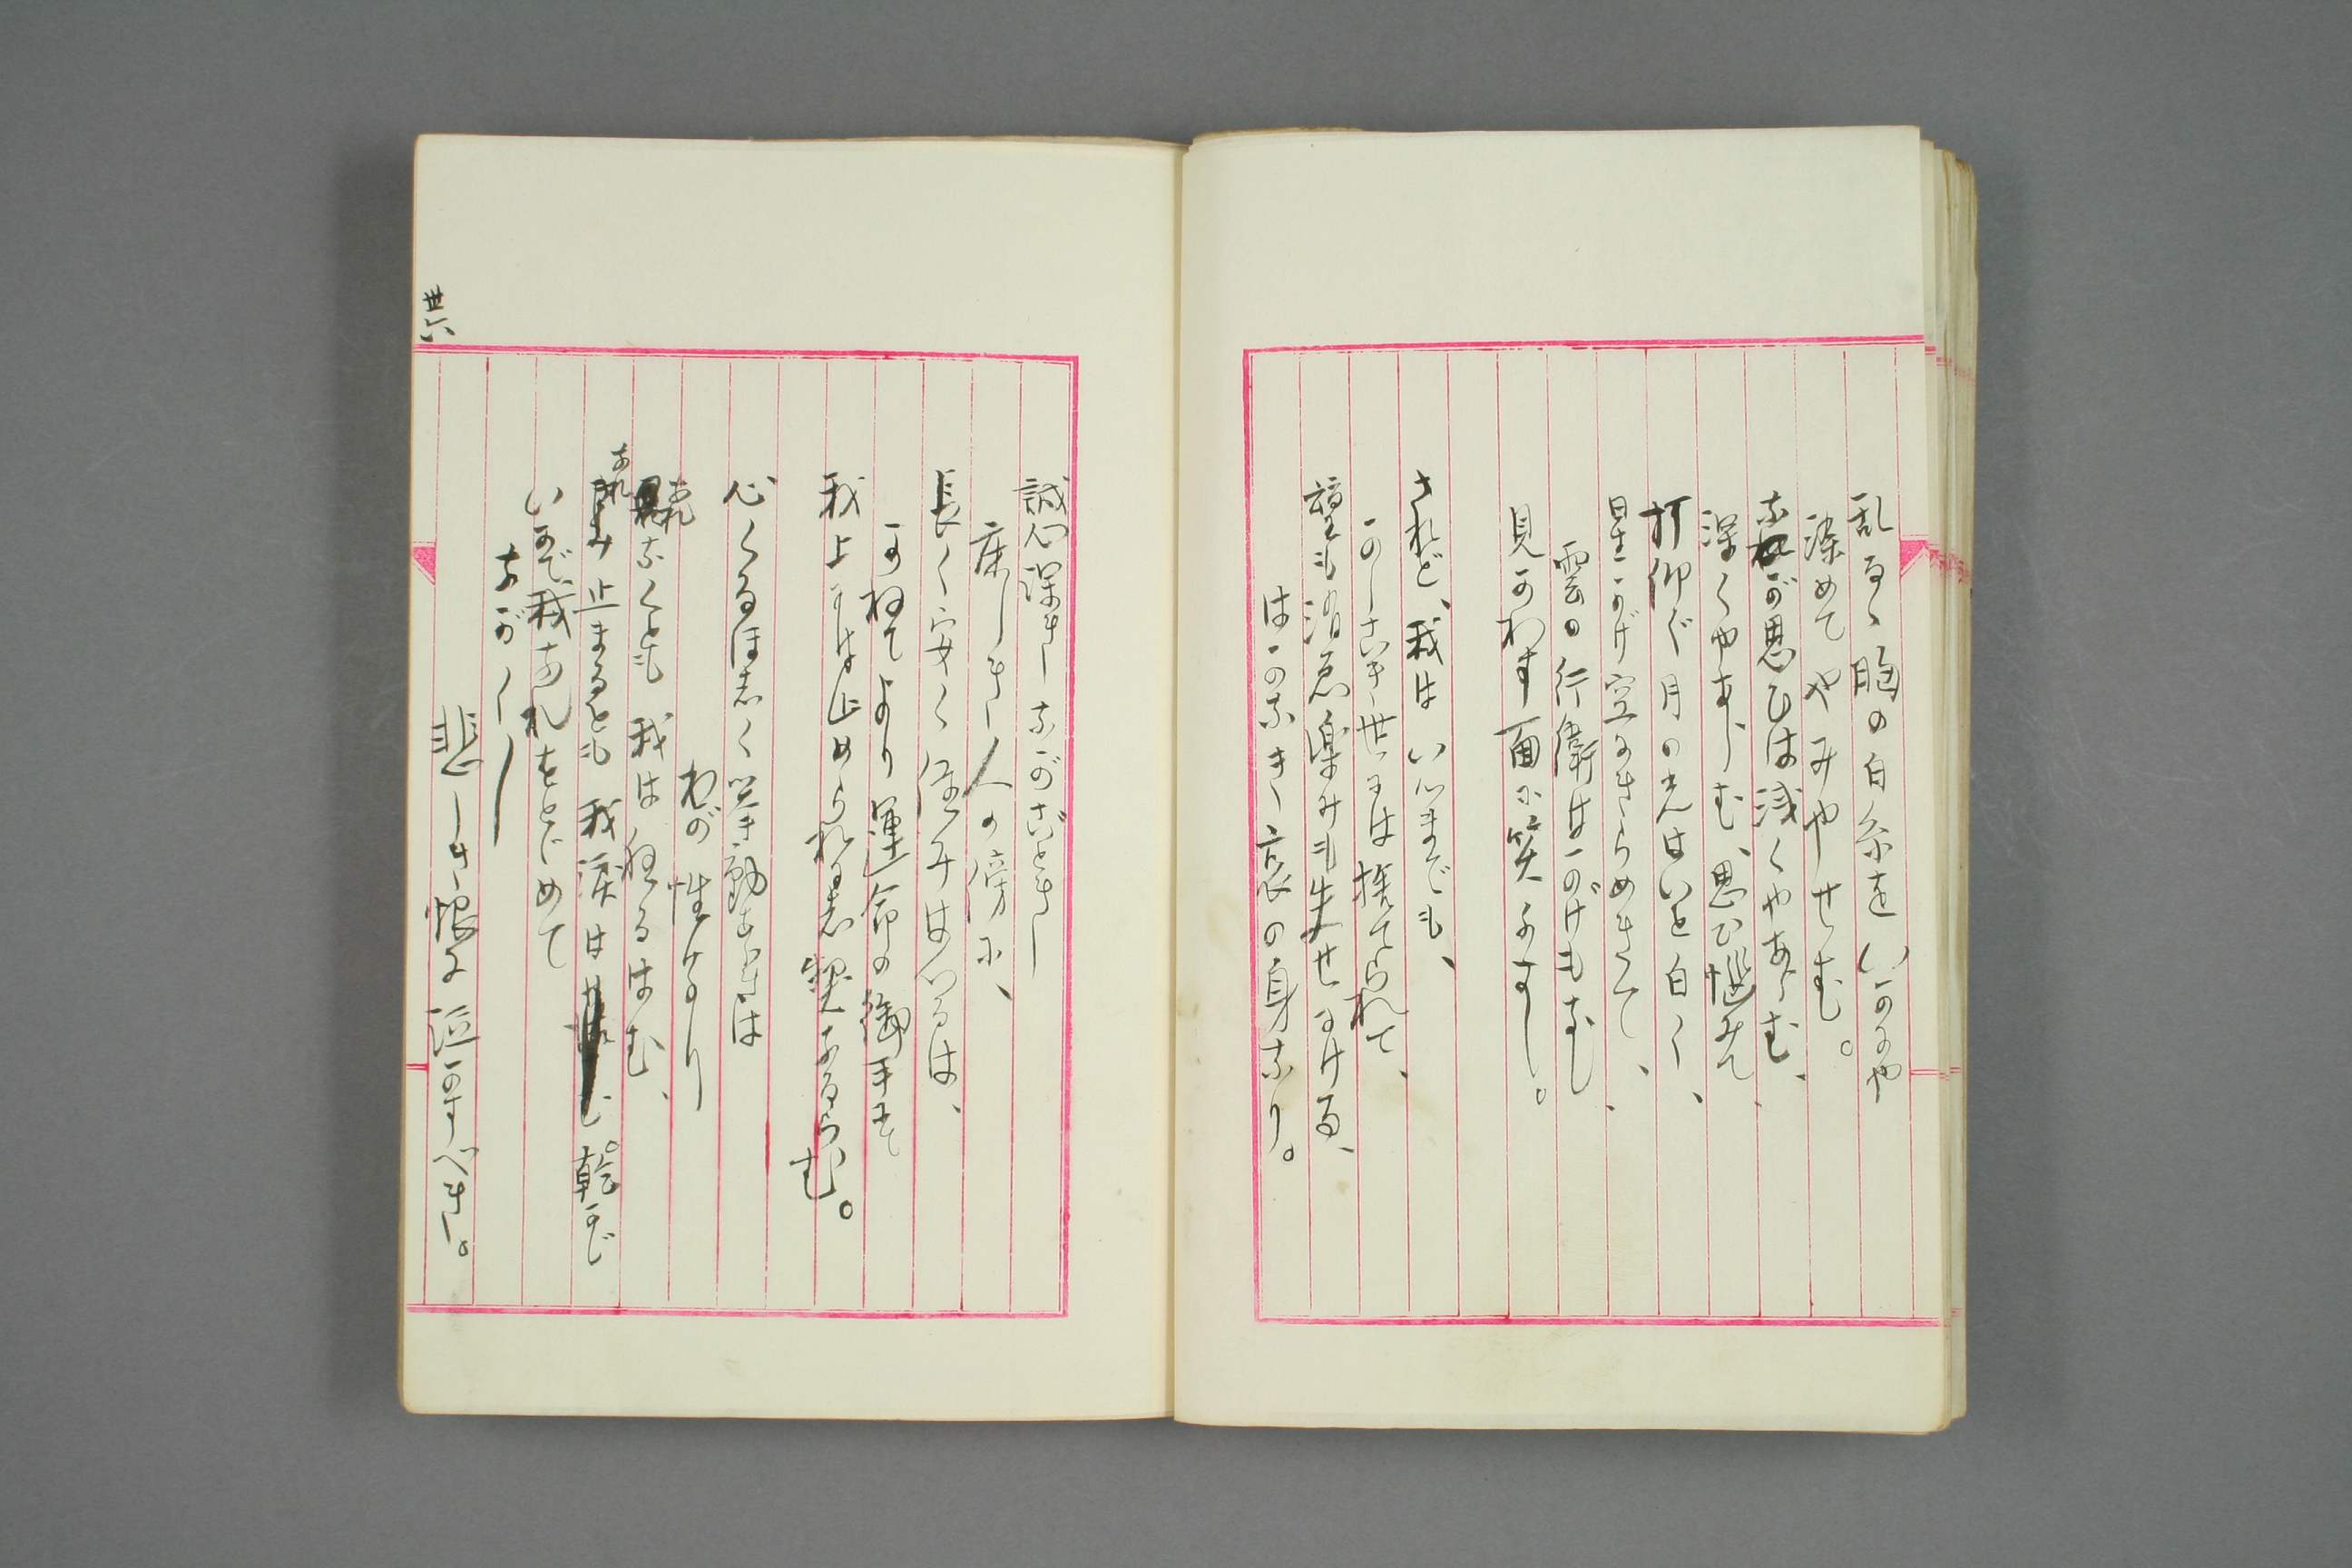 乱るゝ胸の白糸をいかにや
染めてやみやせむ。
ながが思ひは浅くやあらむ、
深くやあらむ、思ひ悩みて
打仰ぐ月の光はいと白く、
星かげ空にきらめきて、
雲の行衛はかげもなし、
見かわす面に笑みなし。
されど、我はいつまでも、
かのしき世には捨てられて、
望も消え楽みも失せにける、
はかなき哀の身なり。
誠心深きながさとし
床しき人の傍に、
長く安く住みはつるは、
かねてより運命の御手もて
我上には止められる契なるらむ。
心くるほしく笑き動あらは
わが性なり
あれなくとも我は狂るはむ、
なれ止まるとも我涙は乾かじ
いかで、我なれをとゞめて
ながく
悲しき恨に泣かすべき。
廿六